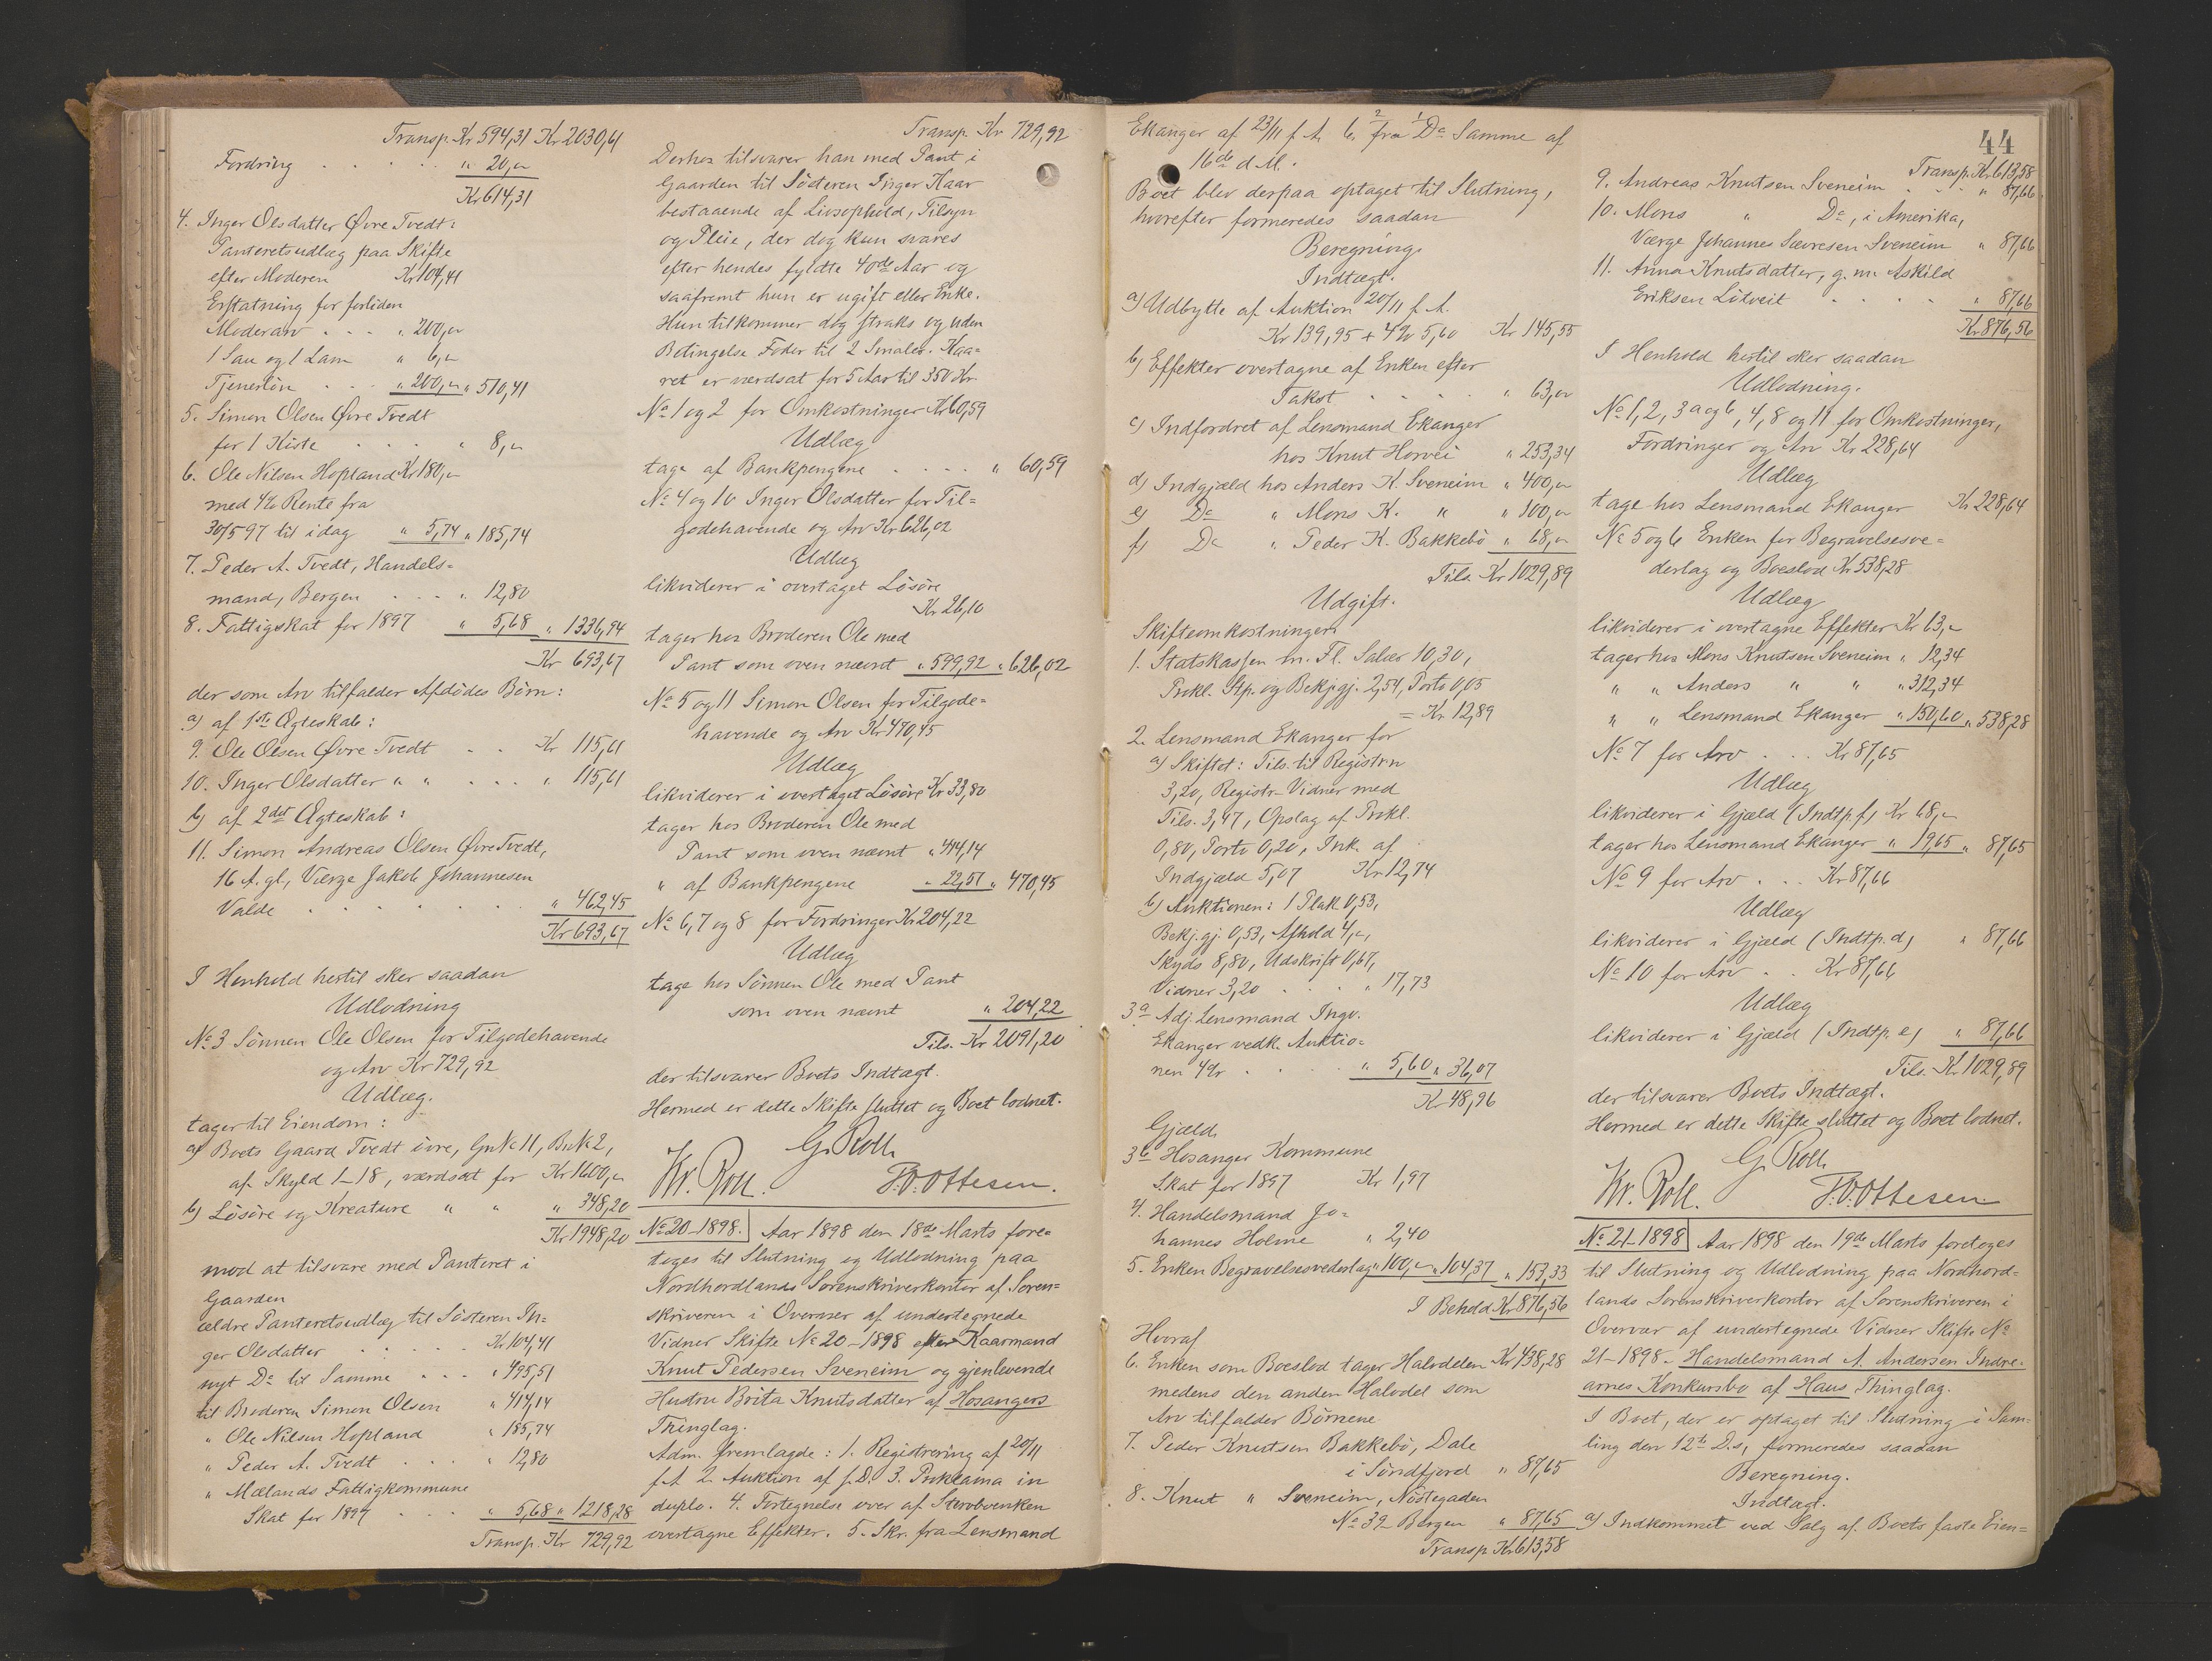 Transp. Kr 594,31 Kr 2030,61
Fordring . . . . . " 20,"
Kr 614,31
4. Inger Olsdatter Øvre Tvedt:
Panteretsudlæg paa Skifte
efter Moderen Kr 104,41
Erstatning for forliden
Moderarv . . . " 200,"
1 Sau og 1 Lam " 6,"
Tjenerløn . . . " 200," " 510,41
5. Simon Olsen Øvre Tvedt
for 1 Kiste . . . . " 8,"
6. Ole Nilsen Hopland Kr 180,"
med 4% Rente fra
30/5 97 til idag " 5,74 " 185,74
7. Peder A. Tvedt, Handels=
mand, Bergen . . . " 12,80
8. Fattigskat for 1897 " 5,68 " 1336,94
Kr 693,67
der som Arv tilfalder Afdødes Børn:
a) af 1ste Ægteskab:
9. Ole Olsen Øvre Tvedt . . Kr 115,61
10. Inger Olsdatter " " . . . . " 115,61
b) af 2det Ægteskab:
11. Simon Andreas Olsen Øvre Tvedt,
16 A. gl., Værge Jakob Johannesen
Valde . . . . . . . " 462,45
Kr 693,67
I Henhold hertil sker saadan
Udlodning
No 3 Sønnen Ole Olsen for Tilgodehavende
og Arv Kr 729,92
Udlæg.
tager til Eiendom:
a) Boets Gaard Tvedt øvre, GNo 11, BNo 2,
af Skyld 1-18, værdsat for Kr 1600,"
b) Løsøre og Kreature " " " 348,20
Kr 1948,20
mod at tilsvare med Panteret i
Gaarden
ældre Panteretsudlæg til Søsteren In=
ger Olsdatter . . . . . Kr 104,41
nyt Do til Samme . . . " 495,51
til Broderen Simon Olsen " 414,14
" Ole Nilsen Hopland " 185,74
" Peder A. Tvedt . . . " 12,80
" Mælands Fattigkommune
Skat for 1897 . . . " 5,68 " 1218,28
Transp. Kr 729,92
Transp. Kr 729,92
Derhos tilsvarer han med Pant i
Gaarden til Søsteren Inger Kaar
bestaaende af Livsophold, Tilsyn
og Pleie, der dog kun svares
efter hendes fyldte 40de Aar og
saafremt hun er ugift eller Enke.
Hun tilkommer dog straks og uden
Betingelse Foder til 2 Smaler. Kaa=
ret er værdsat for 5 Aar til 350 Kr.
No 1 og 2 for Omkostninger Kr 60,59
Udlæg
tage af Bankpengene . . . . " 60,59
No 4 og 10 Inger Olsdatter for Til=
godehavende og Arv Kr 626,02
Udlæg
likviderer i overtaget Løsøre
Kr 26,10
tager hos Broderen Ole med
Pant som oven nævnt " 599,92 " 626,02
No 5 og 11 Simon Olsen for Tilgode=
havende og Arv Kr 470,45
Udlæg
likviderer i overtaget Løsøre Kr 33,80
tager hos Broderen Ole med
Pant som oven nævnt " 414,14
" af Bankpengene " 22,51 " 470,45
No 6, 7 og 8 for Fordringer Kr 204,22
Udlæg
tage hos Sønnen Ole med Pant
som oven nævnt " 204,22
Tils. Kr 2091,20
der tilsvarer Boets Indtægt.
Hermed er dette Skifte sluttet og Boet lodnet.
G. Roll.
Kr. Roll. P.O. Ottesen.
No 20-1898. Aar 1898 den 18de Marts fore=
toges til Slutning og Udlodning paa
Nordhordlands Sorenskriverkontor af Soren=
skriveren i Overvær af undertegnede
Vidner Skifte No 20-1898 efter Kaarmand
Knut Pedersen Sveneim og gjenlevende
Hustru Brita Knutsdatter af Hosangers
Thinglag.
Adm. fremlagde: 1. Registrering af 20/11
f. A. 2. Auktion af s. D. 3. Proklama in
duplo. 4. Fortegnelse over af Stervboenken
overtagne Effekter. 5. Skr. fra Lensmand
Ekanger af 23/11 f. A. 6. 2 fra 1 Do Samme af
16de d. M.
Boet blev derpaa optaget til Slutning,
hvorefter formeredes saadan
Beregning.
Indtægt.
a) Udbytte af Auktion 20/11 f. A.
Kr 139,95 + 4% 5,60 Kr 145,55
b) Effekter overtagne af Enken efter
Takst . . . . . " 63,"
c) Indfordret af Lensmand Ekanger
hos Knut Horvei " 253,34
d) Indgjæld hos Anders K. Sveneim " 400,"
e) Do " Mons K. " " 100,"
f) Do " Peder K. Bakkebø " 68,"
Tils. Kr 1029,89
Udgift.
Skifteomkostninger
1. Statskassen m. Fl. Salær 10,30,
Prokl. Stp. og Bekjgj. 2,54, Porto 0,05
= Kr 12,89
2. Lensmand Ekanger for
a) Skiftet: Tils. til Registrn
3,20, Registr. Vidner med
Tils. 3,47, Opslag af Prokl.
0,80, Porto 0,20, Ink. af
Indgjæld 5,07 Kr 12,74
b) Auktionen: 1 Plak 0,53,
Bekj.gj. 0,53, Afhold 4,",
Skyds 8,80, Udskrift 0,67,
Vidner 3,20 . . . . " 17,73
3a Adj. Lensmand Ingv.
Ekanger vedk. Auktio=
nen 4% . . . . " 5,60 " 36,07
Kr 48,96
Gjæld.
3b Hosanger Kommune
Skat for 1897 Kr 1,97
4. Handelsmand Jo=
hannes Holme " 2,40
5. Enken Begravelsesvederlag " 100," " 104,37 " 153,33
I Behold Kr 876,56
Hvoraf
6. Enken som Boeslod tager Halvdelen Kr 438,28
medens den anden Halvdel som
Arv tilfalder Børnene
7. Peder Knutsen Bakkebø, Dale
i Søndfjord " 87,65
8. Knut " Sveneim, Nøstegaden
No 39 Bergen " 87,65
Transp. Kr 613,58
44
Transp. Kr 613,58
9. Andreas Knutsen Sveneim . . . " 87,66
10. Mons " Do, i Amerika,
Værge Johannes Sævresen Sveneim " 87,66
11. Anna Knutsdatter, g. m. Askild
Eriksen Litveit . . . . . " 87,66
Kr 876,56
I Henhold hertil sker saadan
Udlodning.
No 1, 2, 3a og b, 4, 8 og 11 for Omkostninger,
Fordringer og Arv Kr 228,64
Udlæg
tage hos Lensmand Ekanger Kr 228,64
No 5 og 6 Enken for Begravelsesve=
derlag og Boeslod Kr 538,28
Udlæg
likviderer i overtagne Effekter Kr 63,"
tager hos Mons Knutsen Sveneim " 12,34
" " Anders " " " 312,34
" " Lensmand Ekanger " 150,60 " 538,28
No 7 for Arv . . . Kr 87,65
Udlæg
likviderer i Gjæld (Indtp. f) Kr 68,"
tager hos Lensmand Ekanger " 19,65 " 87,65
No 9 for Arv . . . Kr 87,66
Udlæg
likviderer i Gjæld (Indtp. d) " 87,66
No 10 for Arv . . Kr 87,66
Udlæg
likviderer i Gjæld (Indtp. e) " 87,66
Tils. Kr 1029,89
der tilsvarer Boets Indtægt.
Hermed er dette Skifte sluttet og Boet lodnet.
G. Roll.
Kr. Roll. P.O. Ottesen.
No 21-1898 Aar 1898 den 19de Marts foretoges
til Slutning og Udlodning paa Nordhord=
lands Sorenskriverkontor af Sorenskriveren i
Overvær af undertegnede Vidner Skifte No
21-1898 - Handelsmand A. Andersen Indre-
arnes Konkursbo af Haus Thinglag.
I Boet, der er optaget til Slutning i Sam=
ling den 12te D.s, formeredes saadan
Beregning.
Indtægt.
a) Indkommet ved Salg af Boets faste Eien=